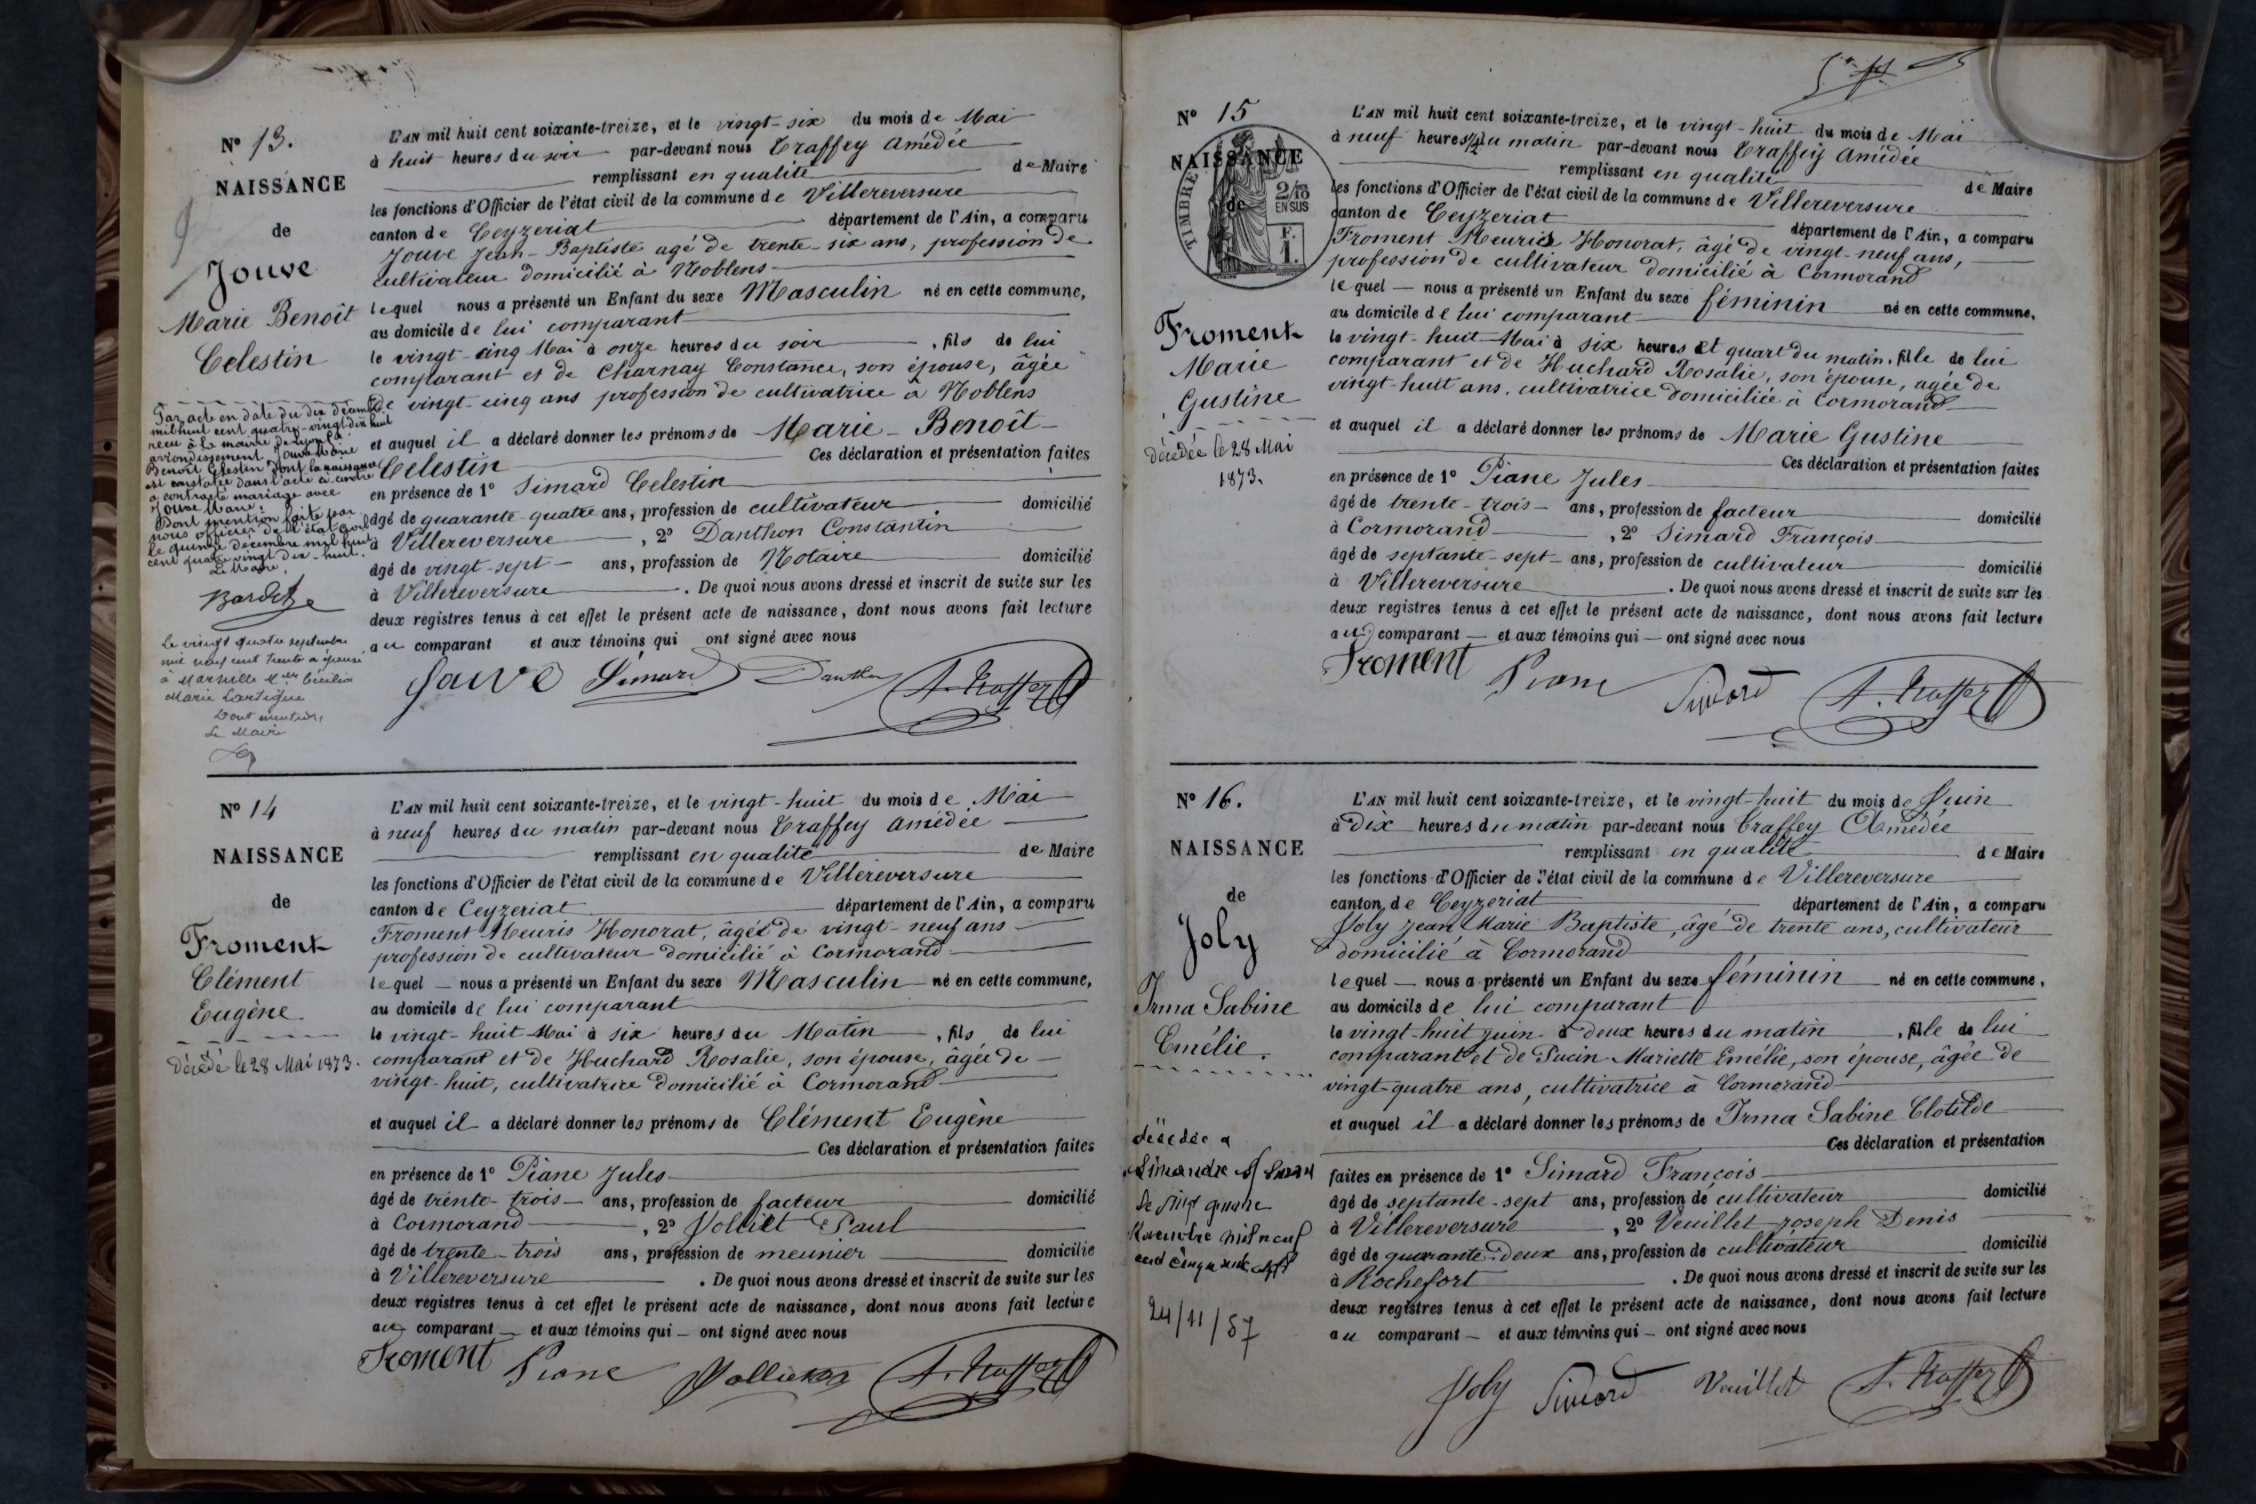 Nº 13.
NAISSANCE
de
Jouve
Marie Benoît
Celestin
Par acte en date du dix décembre
mil huit cent quatre-vingt-dix huit
reçu à la mairie de Lyon
arrondissement, Jouve Marie
Benoît Celestin dont la naissance
est constatée dans l'acte ci-contre
a contracté mariage avec
Jouve Marie.
Dont mention faite par
nous officier de l'état civil
le quinze décembre mil huit
cent quatre vingt dix-huit.
Le Maire,
Le vingt quatre septembre
mil neuf cent trente a épousé
à Marseille Cécilia
Marie Lartigue
Dont mention,
Le Maire
L'AN mil huit cent soixante-treize, et le vingt-six du mois de Mai
à huit heures du soir par-devant nous Traffey Amédée
remplissant en qualité de Maire
les fonctions d'Officier de l'état civil de la commune de Villereversure
canton de Ceyzeriat département de l'Ain, a comparu
Jouve Jean-Baptiste agé de trente-six ans, profession de
cultivateur domicilié à Noblens
lequel nous a présenté un Enfant du sexe Masculin né en cette commune,
au domicile de lui comparant
le vingt-cinq Mai à onze heures du soir, fils de lui
comparant et de Charnay Constance, son épouse, âgée
de vingt-cinq ans profession de cultivatrice à Noblens
et auquel il a déclaré donner les prénoms de Marie-Benoît-
Celestin Ces déclaration et présentation faites
en présence de 1º Simard Celestin
âgé de quarante-quatre ans, profession de cultivateur domicilié
à Villereversure, 2º Danthon Constantin
âgé de vingt-sept ans, profession de Notaire domicilié
à Villereversure. De quoi nous avons dressé et inscrit de suite sur les
deux registres tenus à cet effet le présent acte de naissance, dont nous avons fait lecture
au comparant et aux témoins qui ont signé avec nous
Jouve Simard Danthon A. Traffey
Nº 14
NAISSANCE
de
Froment
Clément
Eugène
Décédé le 28 Mai 1873.
L'AN mil huit cent soixante-treize, et le vingt-huit du mois de Mai
à neuf heures du matin par-devant nous Traffey Amédée
remplissant en qualité de Maire
les fonctions d'Officier de l'état civil de la commune de Villereversure
canton de Ceyzeriat département de l'Ain, a comparu
Froment Meuris Honorat, âgé de vingt-neuf ans
profession de cultivateur domicilié à Cormorand
lequel — nous a présenté un Enfant du sexe Masculin né en cette commune,
au domicile de lui comparant
le vingt-huit Mai à six heures du Matin, fils de lui
comparant et de Huchard Rosalie, son épouse, âgée de
vingt-huit, cultivatrice domicilié à Cormorand
et auquel il a déclaré donner les prénoms de Clément Eugène
Ces déclaration et présentation faites
en présence de 1º Piane Jules
âgé de trente-trois ans, profession de facteur domicilié
à Cormorand, 2º Volliet Paul
âgé de trente-trois ans, profession de meunier domicilié
à Villereversure. De quoi nous avons dressé et inscrit de suite sur les
deux registres tenus à cet effet le présent acte de naissance, dont nous avons fait lecture
au comparant — et aux témoins qui — ont signé avec nous
Froment Piane A. Traffey
Nº 15
NAISSANCE
de
TIMBRE
2/10
EN SUS
F.
1.
Froment
Marie
Gustine
Décédée le 28 Mai
1873.
L'AN mil huit cent soixante-treize, et le vingt-huit du mois de Mai
à neuf heures 1/2 du matin par-devant nous Traffey Amédée
remplissant en qualité de Maire
les fonctions d'Officier de l'état civil de la commune de Villereversure
canton de Ceyzeriat département de l'Ain, a comparu
Froment Meuris Honorat, âgé de vingt-neuf ans,
profession de cultivateur domicilié à Cormorand
lequel — nous a présenté un Enfant du sexe féminin né en cette commune,
au domicile de lui comparant
le vingt-huit Mai à six heures et quart du matin, fille de lui
comparant et de Huchard Rosalie, son épouse, agée de
vingt-huit ans, cultivatrice domiciliée à Cormorand
et auquel il a déclaré donner les prénoms de Marie Gustine
Ces déclaration et présentation faites
en présence de 1º Piane Jules
âgé de trente-trois ans, profession de facteur domicilié
à Cormorand, 2º Simard François
âgé de septante-sept ans, profession de cultivateur domicilié
à Villereversure. De quoi nous avons dressé et inscrit de suite sur les
deux registres tenus à cet effet le présent acte de naissance, dont nous avons fait lecture
au comparant — et aux témoins qui — ont signé avec nous
Froment Piane Simard A. Traffey
Nº 16.
NAISSANCE
de
Joly
Irma Sabine
Emélie.
décédée a
Simandre s/ Suran
le vingt quatre
Novembre mil neuf
cent cinquante sept
24/11/57
L'AN mil huit cent soixante-treize, et le vingt-huit du mois de Juin
à dix heures du matin par-devant nous Traffey Amédée
remplissant en qualité de Maire
les fonctions d'Officier de l'état civil de la commune de Villereversure
canton de Ceyzeriat département de l'Ain, a comparu
Joly Jean Marie Baptiste, âgé de trente ans, cultivateur
domicilié à Cormorand
lequel — nous a présenté un Enfant du sexe féminin né en cette commune,
au domicile de lui comparant
le vingt-huit juin à deux heures du matin, fille de lui
comparant et de Pucin Mariette Emélie, son épouse, âgée de
vingt-quatre ans, cultivatrice à Cormorand
et auquel il a déclaré donner les prénoms de Irma Sabine Clotilde
Ces déclaration et présentation
faites en présence de 1º Simard François
âgé de septante-sept ans, profession de cultivateur domicilié
à Villereversure, 2º Veuillet Joseph Denis
âgé de quarante-deux ans, profession de cultivateur domicilié
à Rochefort. De quoi nous avons dressé et inscrit de suite sur les
deux registres tenus à cet effet le présent acte de naissance, dont nous avons fait lecture
au comparant — et aux témoins qui — ont signé avec nous
Joly Simard Veuillet A. Traffey